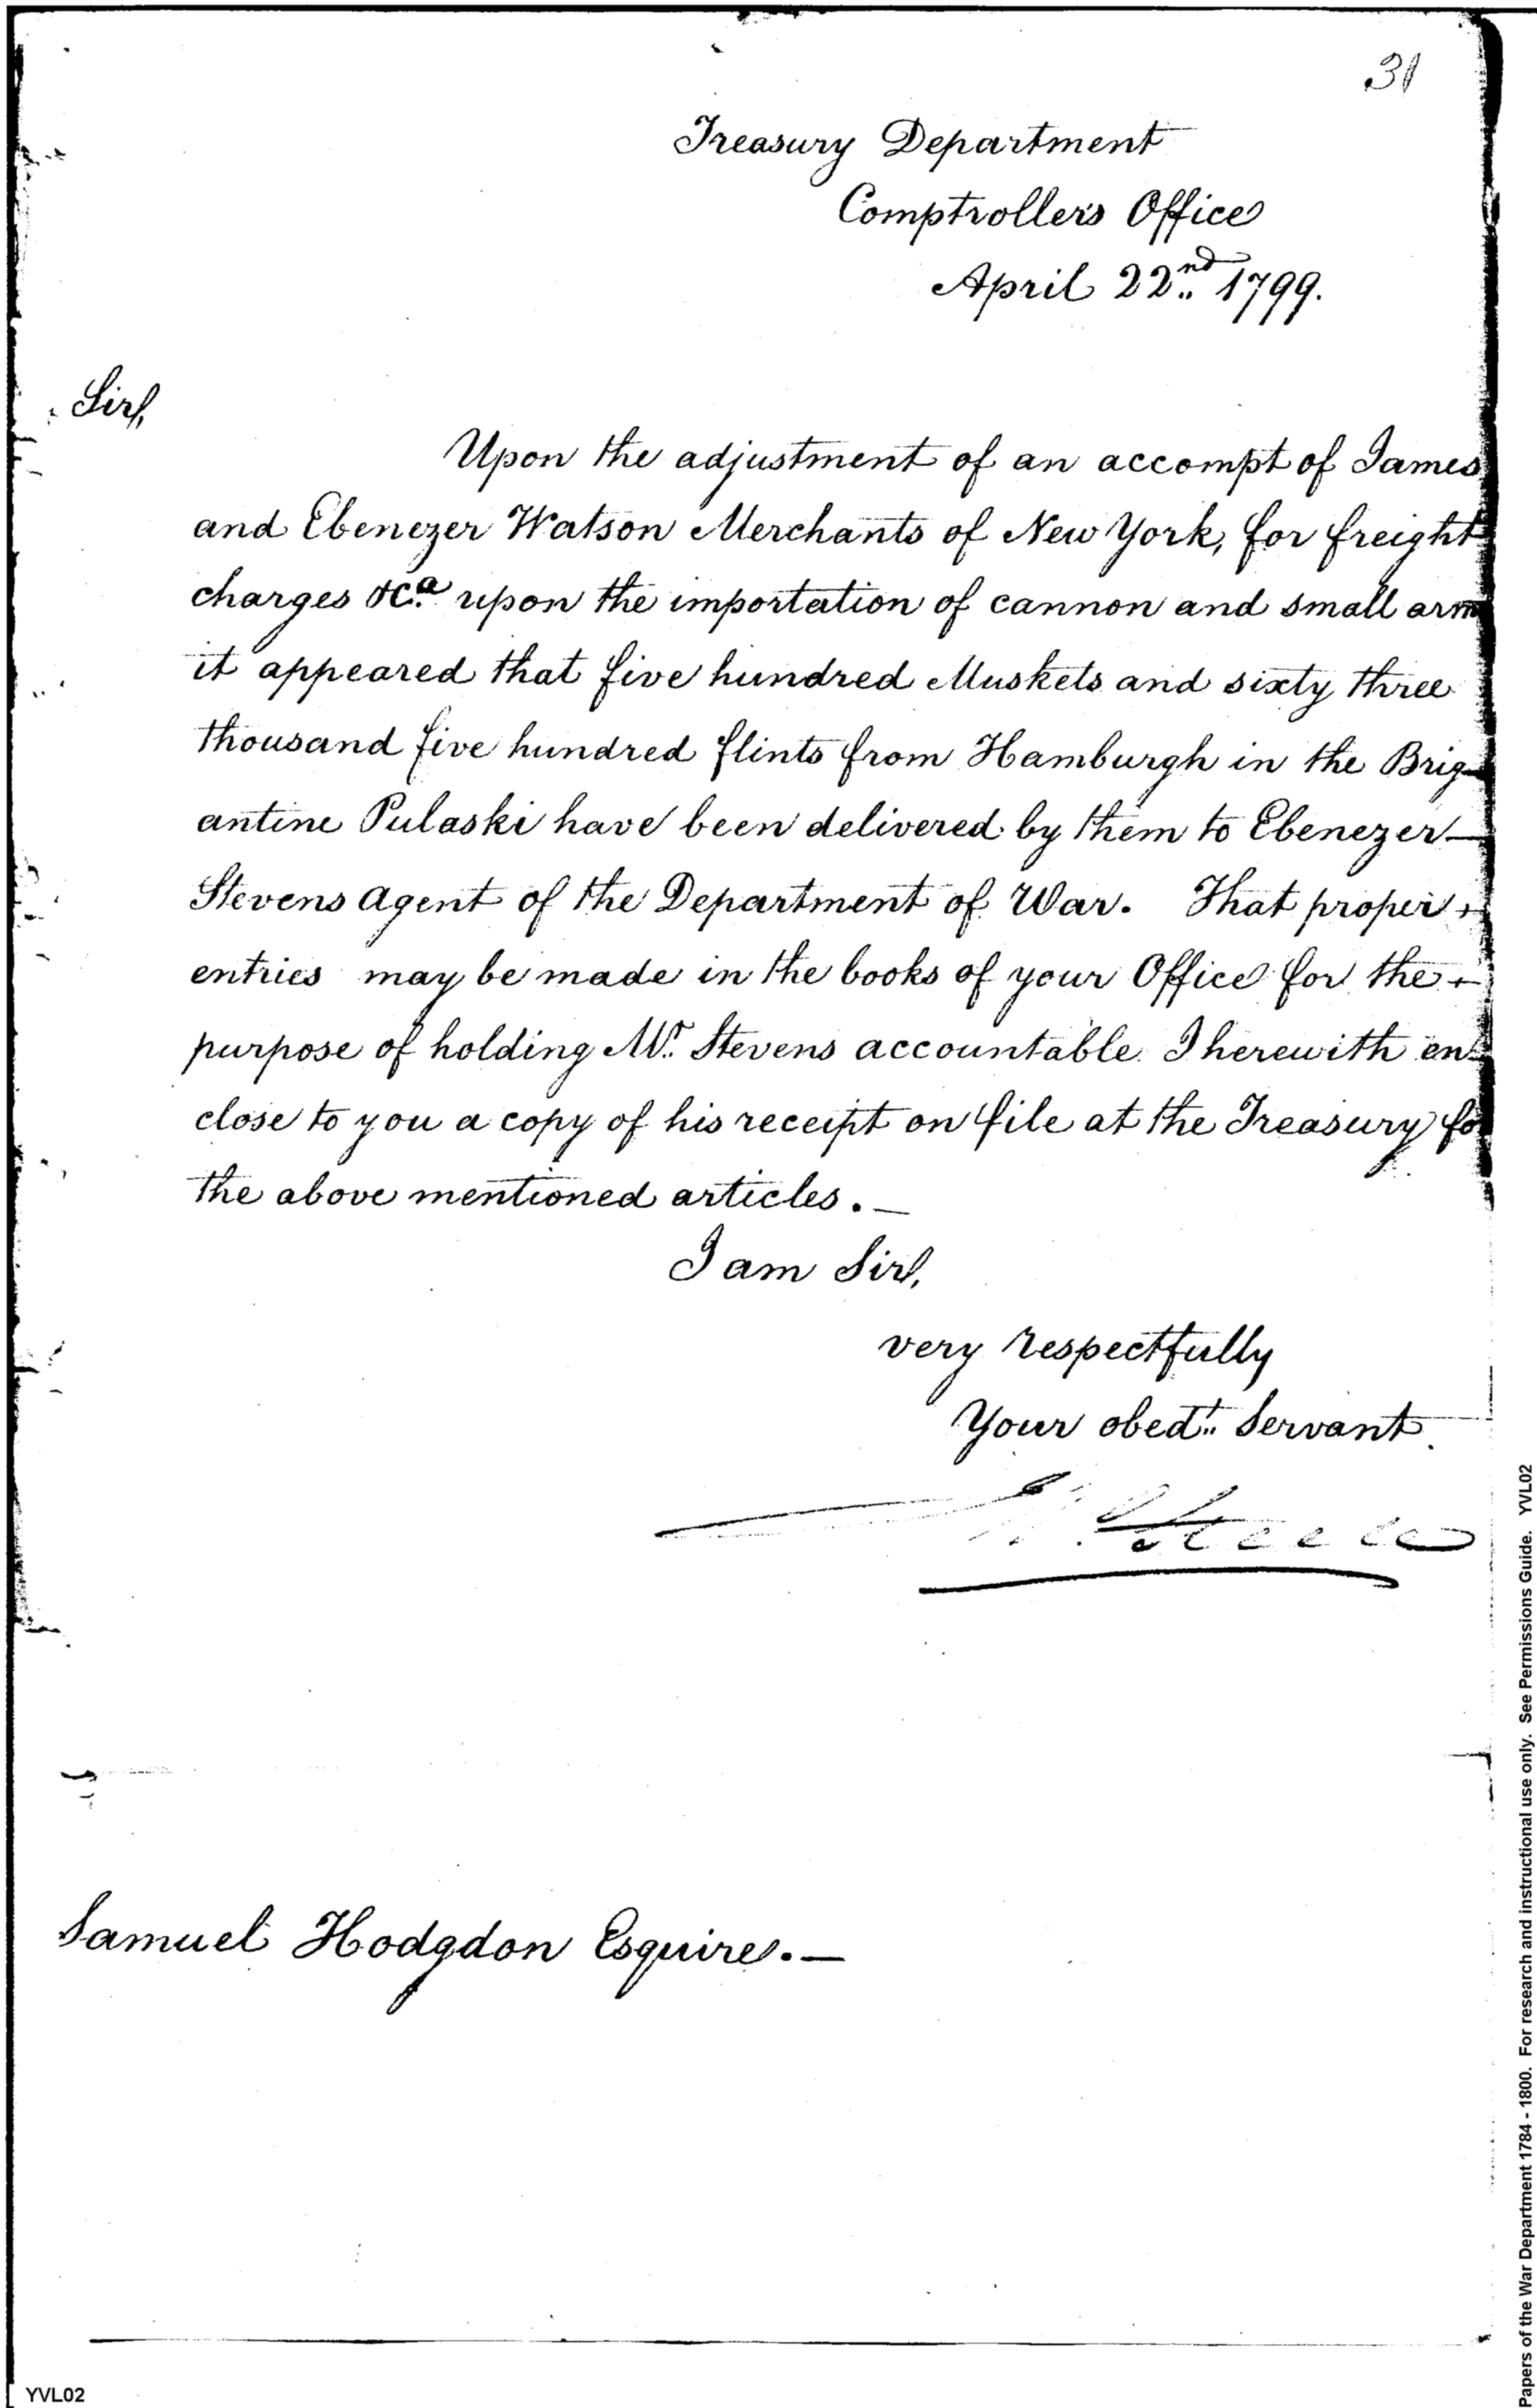 31
Treasury Department
Comptroller's Office
April 22nd 1799.
Sir,
Upon the adjustment of an accompt of James
and Ebenezer Watson Merchants of New York, for freight
charges &ca upon the importation of cannon and small arm
it appeared that five hundred Muskets and sixty three
thousand five hundred flints from Hamburgh in the Brig-
antine Pulaski have been delivered by them to Ebenezer
Stevens agent of the Department of War. That proper
entries may be made in the books of your Office for the
purpose of holding Mr. Stevens accountable. I herewith en-
close to you a copy of his receipt on file at the Treasury fo
the above mentioned articles. —
I am Sir,
very respectfully
Your obedt. Servant
Steele
Samuel Hodgdon Esquire. —
YVL02
Papers of the War Department 1784 - 1800. For research and instructional use only. See Permissions Guide. YVL02